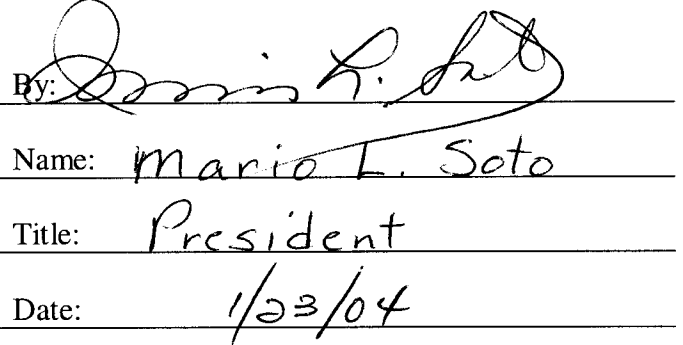 By:
Name: Mario L. Soto
Title: President
Date: 1/23/04